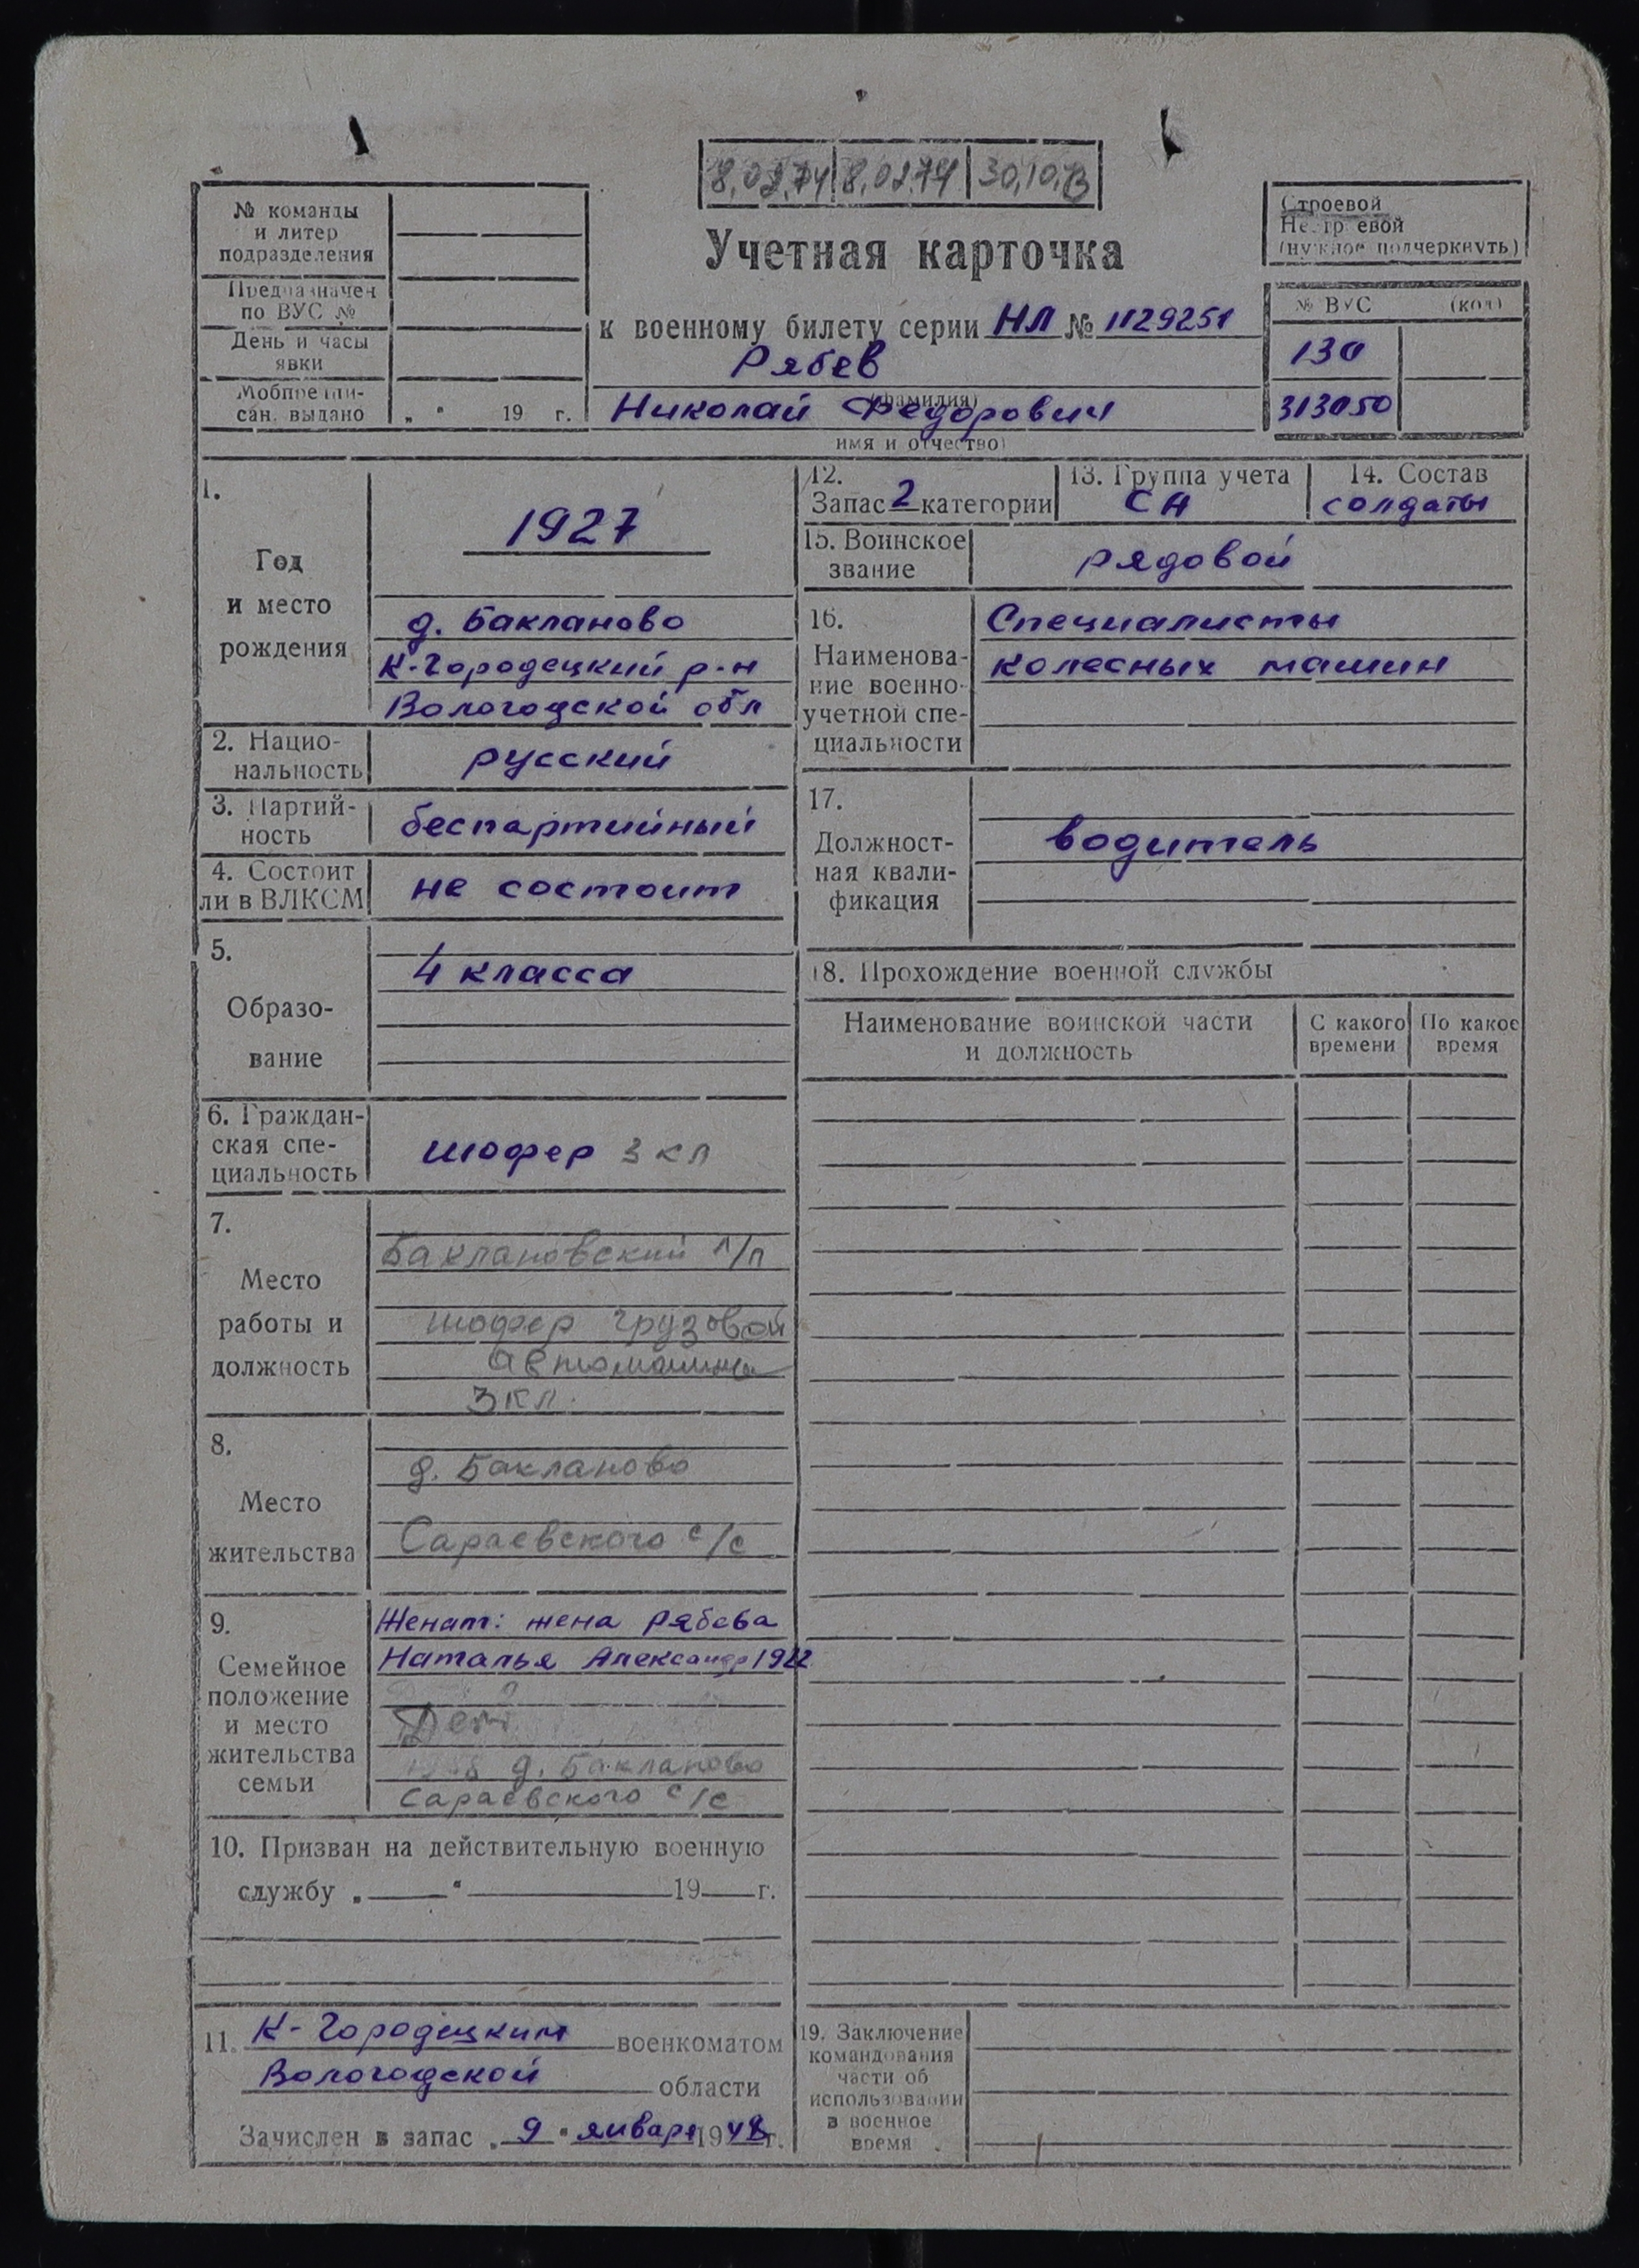 8.02.74 8.02.74 30.10.
№ команды
и литер
подразделения
Предназначен
по ВУС №
День и часы
явки
Мобпредпи-
сан. выдано „ " 19 г.
Учетная карточка
к военному билету серии НЛ № 1129251
Рябев
(фамилия)
Николай Федорович
имя и отчество)
Строевой
Нестроевой
(нужное подчеркнуть)
№ ВУС (код)
130
313050
1.
Год
и место
рождения
1927
д. Бакланово
К-Городецкий р-н
Вологодской обл
2. Нацио-
нальность
русский
3. Партий-
ность
беспартийный
4. Состоит
ли в ВЛКСМ
не состоит
5.
Образо-
вание
4 класса
6. Граждан-
ская спе-
циальность
шофер 3 кл
7.
Место
работы и
должность
Баклановский л/п
шофер грузовой
автомашины
3 кл.
8.
Место
жительства
д. Бакланово
Сараевского с/с
9.
Семейное
положение
и место
жительства
семьи
Женат: жена Рябева
Наталья Александр 1922
д. Бакланово
Сараевского с/с
10. Призван на действительную военную
службу „ " 19 г.
11. К-Городецким военкоматом
Вологодской области
Зачислен в запас „ 9 " января 1948 г.
12.
Запас 2 категории
13. Группа учета
СА
14. Состав
солдаты
15. Воинское
звание
рядовой
16.
Наименова-
ние военно-
учетной спе-
циальности
Специалисты
колесных машин
17.
Должност-
ная квали-
фикация
водитель
18. Прохождение военной службы
Наименование воинской части
и должность
С какого
времени
По какое
время
19. Заключение
командования
части об
использовании
в военное
время